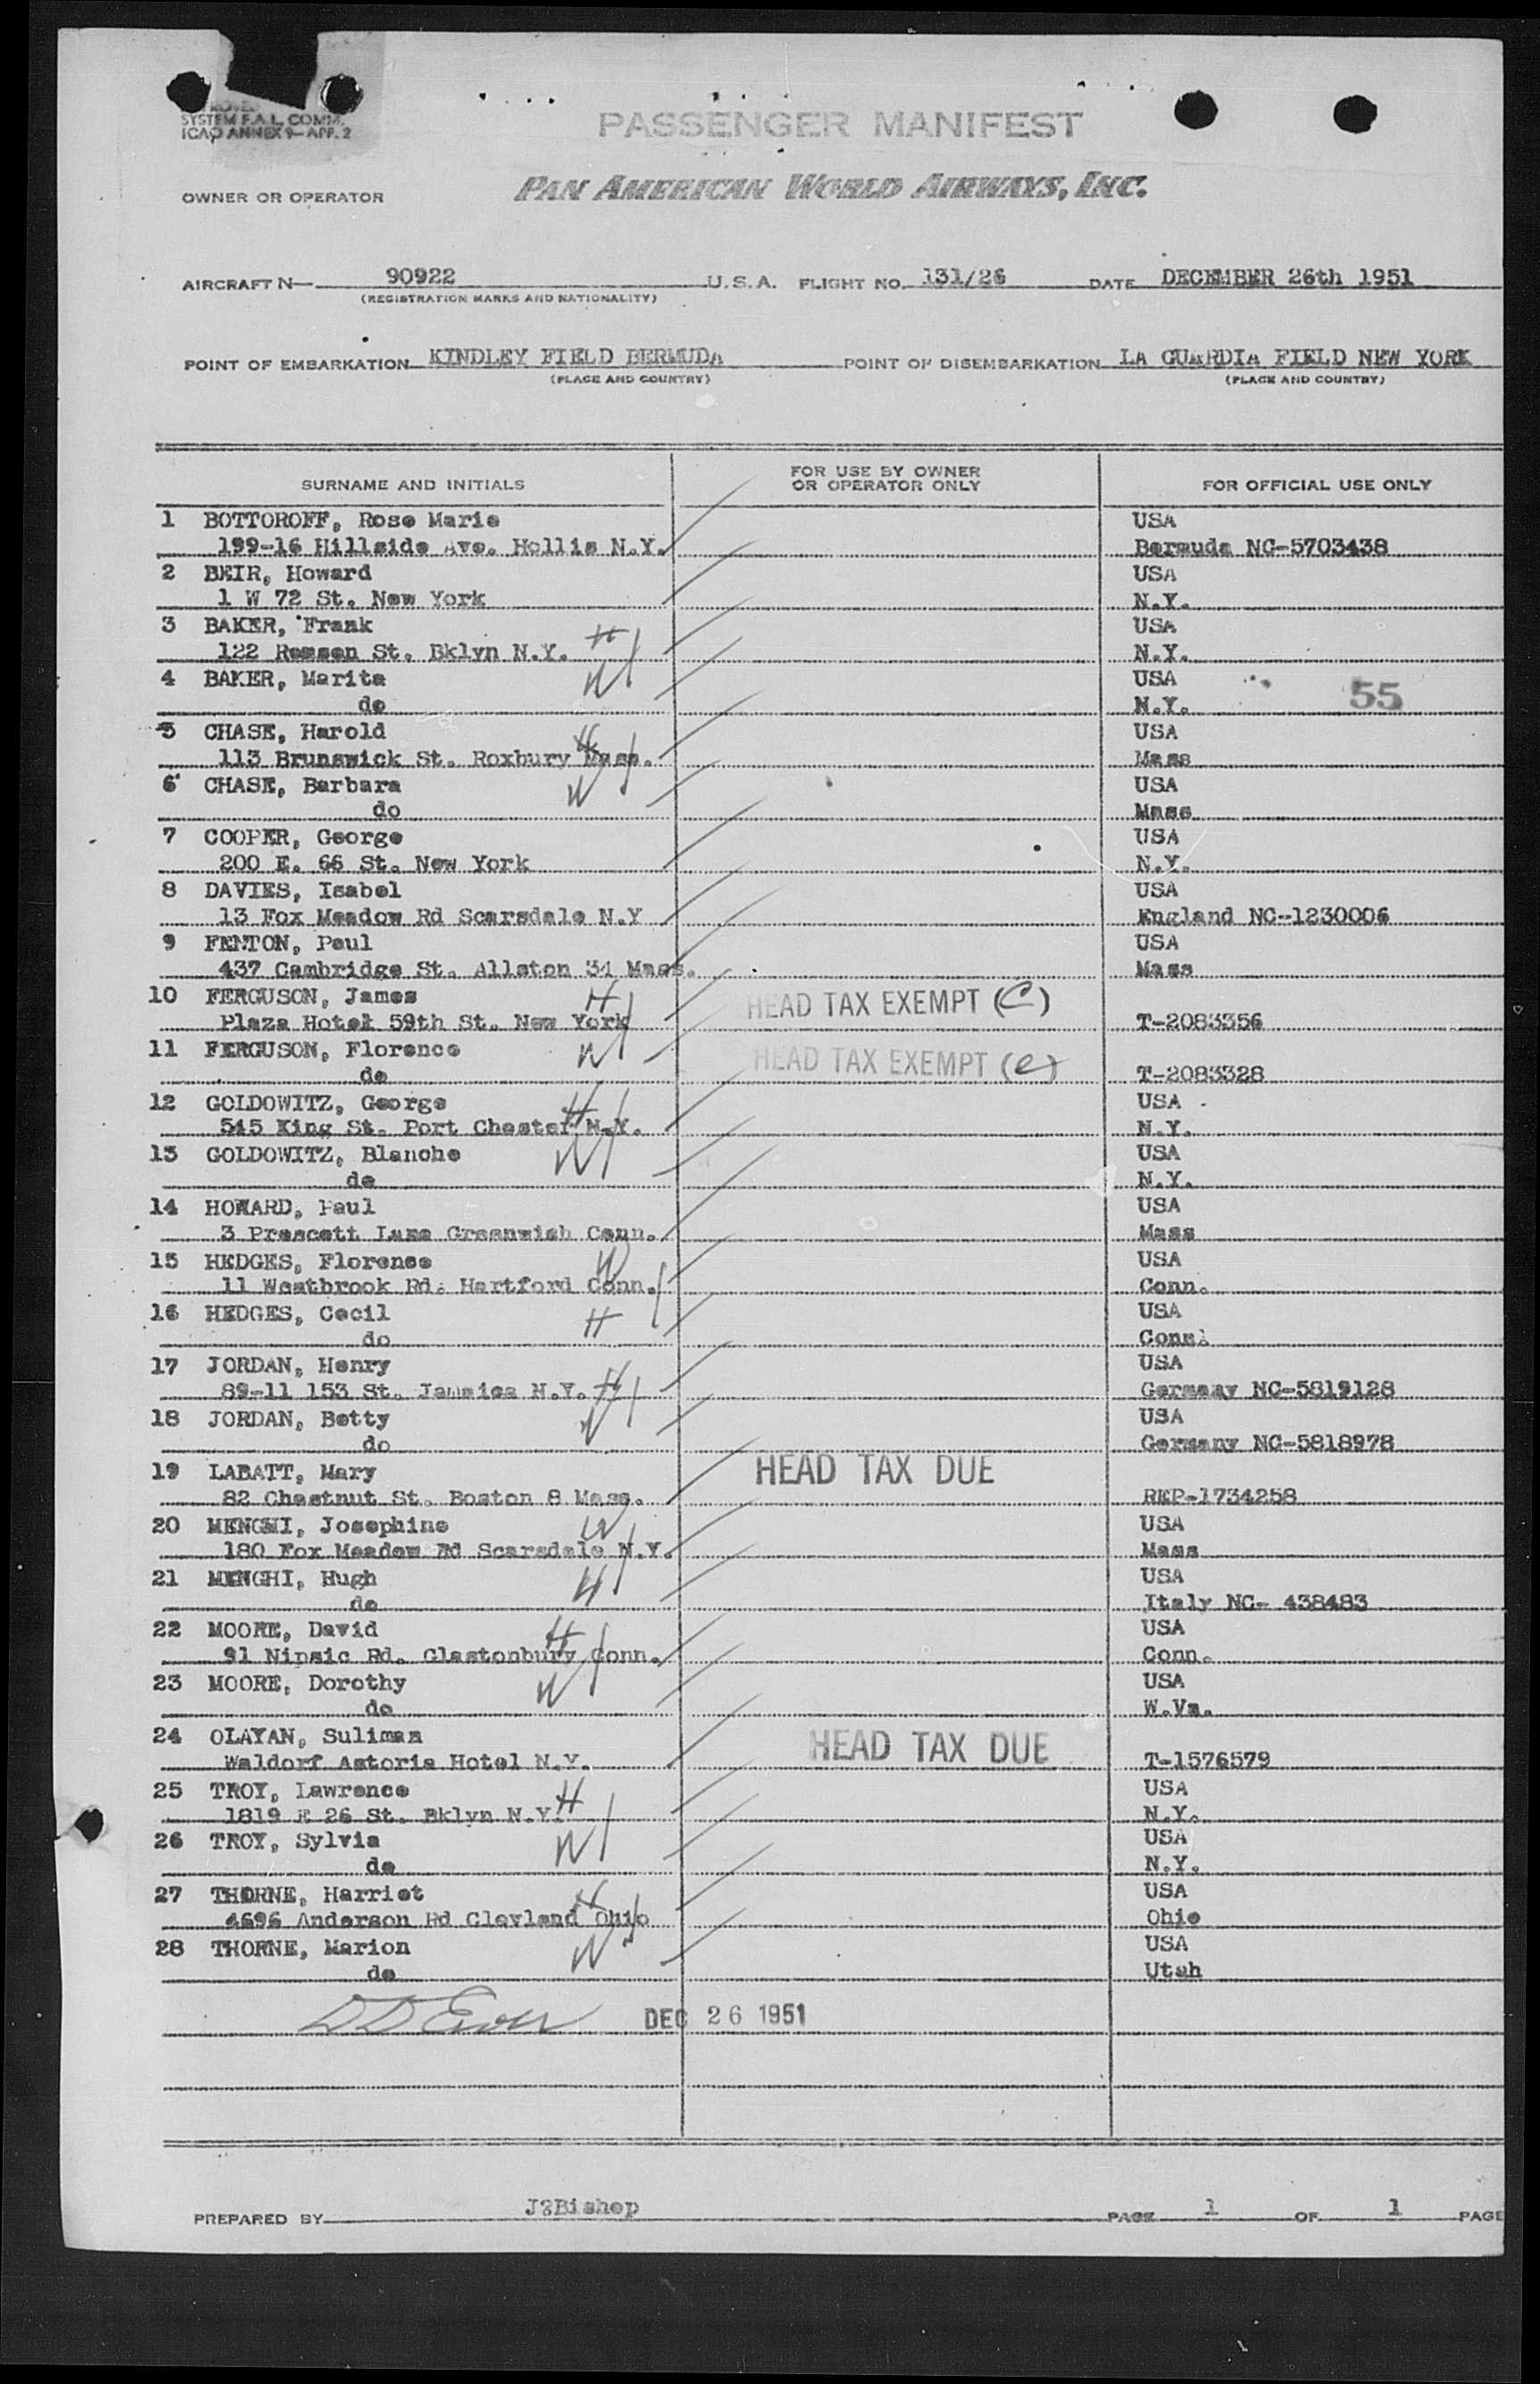 SYSTEM F.A.L. COMM.
ICAO ANNEX 9-APP. 2
PASSENGER MANIFEST
OWNER OR OPERATOR PAN AMERICAN WORLD AIRWAYS, INC.
AIRCRAFT N— 90922 U.S.A. FLIGHT NO. 131/26 DATE DECEMBER 26th 1951
(REGISTRATION MARKS AND NATIONALITY)
POINT OF EMBARKATION KINDLEY FIELD BERMUDA POINT OF DISEMBARKATION LA GUARDIA FIELD NEW YORK
(PLACE AND COUNTRY) (PLACE AND COUNTRY)
SURNAME AND INITIALS FOR USE BY OWNER OR OPERATOR ONLY FOR OFFICIAL USE ONLY
1 BOTTOROFF, Rose Marie USA
199-16 Hillside Ave. Hollis N.Y. Bermuda NC-5703438
2 BEIR, Howard USA
1 W 72 St. New York N.Y.
3 BAKER, Frank H USA
122 Remsen St. Bklyn N.Y. N.Y.
4 BAKER, Marita W USA 55
do N.Y.
5 CHASE, Harold H USA
113 Brunswick St. Roxbury Mass. Mass
6 CHASE, Barbara W USA
do Mass
7 COOPER, George USA
200 E. 66 St. New York N.Y.
8 DAVIES, Isabel USA
13 Fox Meadow Rd Scarsdale N.Y England NC-1230006
9 FENTON, Paul USA
437 Cambridge St. Allston 34 Mass. Mass
10 FERGUSON, James H HEAD TAX EXEMPT (C)
Plaza Hotel 59th St. New York T-2083356
11 FERGUSON, Florence W HEAD TAX EXEMPT (C)
do T-2083328
12 GOLDOWITZ, George H USA
545 King St. Port Chester N.Y. N.Y.
13 GOLDOWITZ, Blanche W USA
do N.Y.
14 HOWARD, Paul USA
3 Prescott Lane Greenwish Conn. Mass
15 HEDGES, Florence W USA
11 Westbrook Rd. Hartford Conn. Conn.
16 HEDGES, Cecil H USA
do Conn.
17 JORDAN, Henry H USA
89-11 153 St. Jamaica N.Y. Germany NC-5819128
18 JORDAN, Betty W USA
do Germany NC-5818978
19 LABATT, Mary HEAD TAX DUE
82 Chestnut St. Boston 8 Mass. REP-1734258
20 MENGHI, Josephine W USA
180 Fox Meadow Rd Scarsdale N.Y. Mass
21 MENGHI, Hugh H USA
do Italy NC- 438483
22 MOORE, David H USA
91 Nipsic Rd. Glastonbury Conn. Conn.
23 MOORE, Dorothy W USA
do W.Va.
24 OLAYAN, Suliman HEAD TAX DUE
Waldorf Astoria Hotel N.Y. T-1576579
25 TROY, Lawrence H USA
1819 E 26 St. Bklyn N.Y. N.Y.
26 TROY, Sylvia W USA
do N.Y.
27 THORNE, Harriet H USA
4696 Anderson Rd Clevland Ohio Ohio
28 THORNE, Marion W USA
do Utah
DEC 26 1951
PREPARED BY J?Bishop PAGE 1 OF 1 PAGE